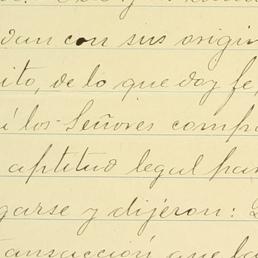 van con sus origin
ito, de lo que doy fe,
í los Señores comp
aptitud legal par
garse y dijeron:
ansacción que